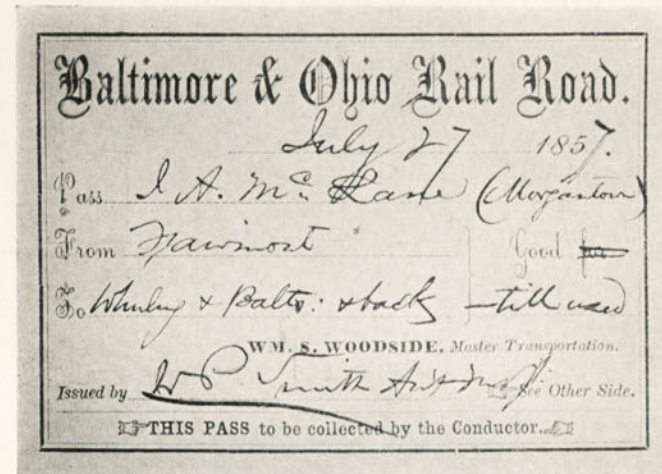 Baltimore & Ohio Rail Road.
July 27 1857.
Pass I A. Mc Lane (Morgantown)
From Fairmont Good for
To Wheeling & Balto: & back till used
WM. S. WOODSIDE, Master Transportation.
Issued by W P Smith See Other Side.
THIS PASS to be collected by the Conductor.